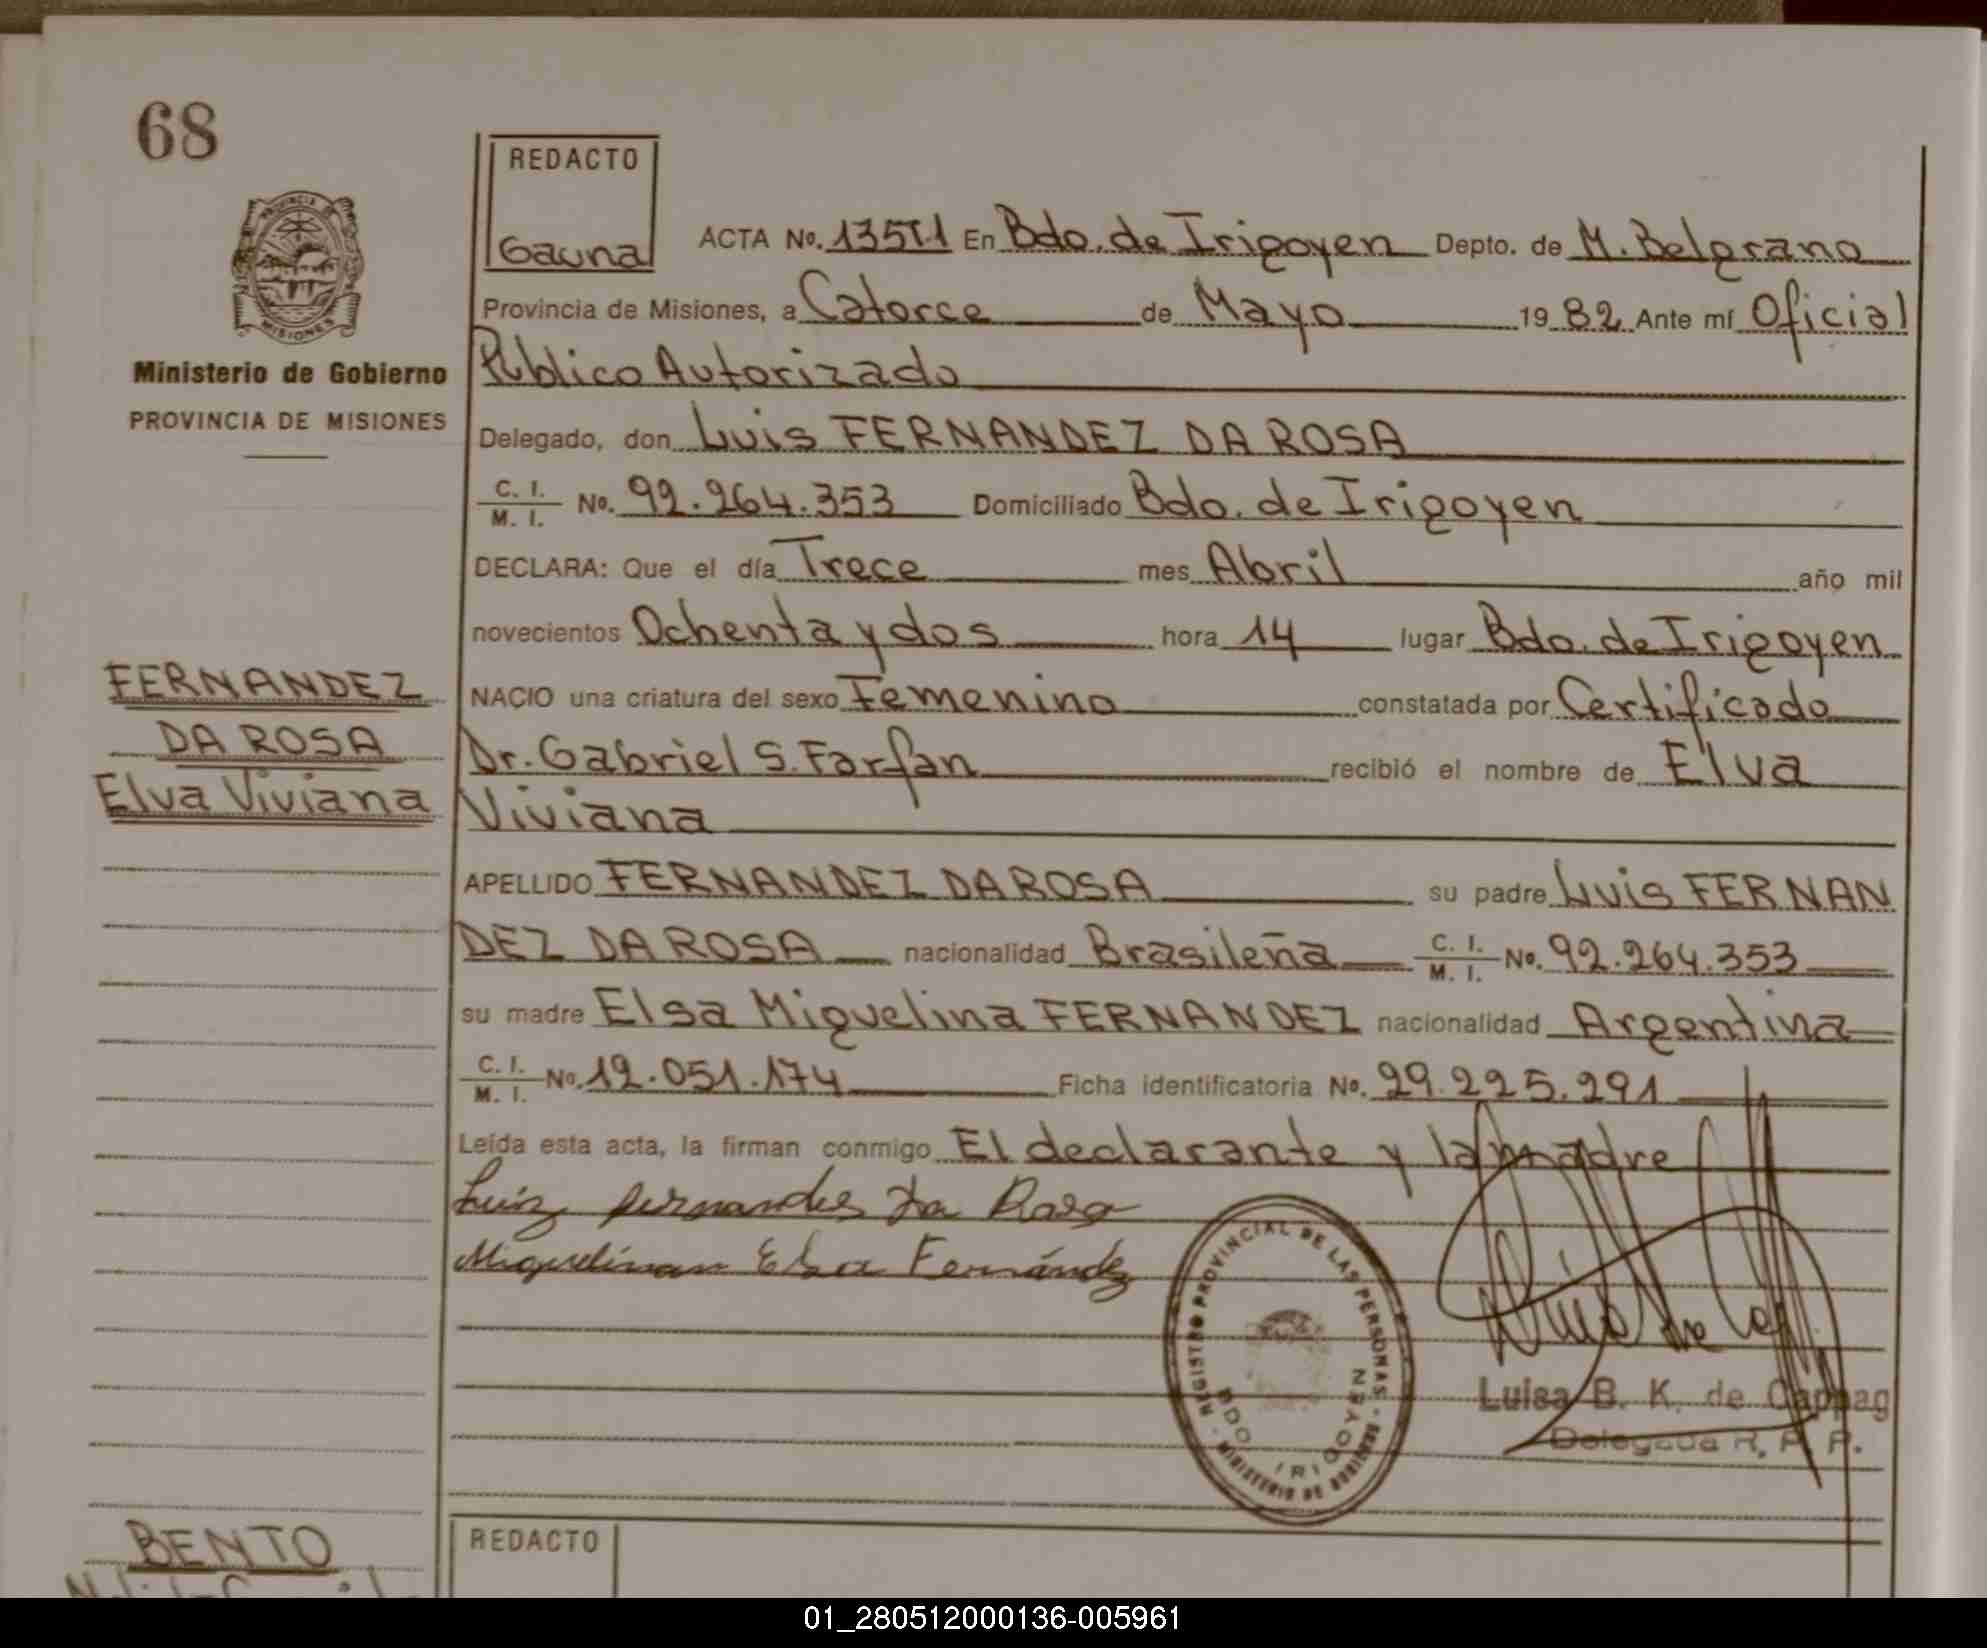 68
REDACTO
Gauna
PROVINCIA DE
MISIONES
Ministerio de Gobierno
PROVINCIA DE MISIONES
ACTA No. En Bdo. de Irigoyen Depto. de M. Belgrano
Provincia de Misiones, a Catorce de Mayo 1982 Ante mí Oficial
Publico Autorizado
Delegado, don Luis FERNANDEZ DA ROSA
C. I. / M. I. No. 92.264.353 Domiciliado Bdo. de Irigoyen
DECLARA: Que el día Trece mes Abril año mil
novecientos Ochenta y dos hora 14 lugar Bdo. de Irigoyen
FERNANDEZ
DA ROSA
Elva Viviana
NACIO una criatura del sexo Femenino constatada por Certificado
Dr. Gabriel S. Farfan recibió el nombre de Elva
Viviana
APELLIDO FERNANDEZ DA ROSA su padre Luis FERNAN
DEZ DA ROSA nacionalidad Brasileña C. I. / M. I. No. 92.264.353
su madre Elsa Miguelina FERNANDEZ nacionalidad Argentina
C. I. / M. I. No. 12.051.174 Ficha identificatoria No. 29.225.291
Leída esta acta, la firman conmigo El declarante y la madre
Luiz fernandes Da Rosa
Elsa Fernández
REGISTRO PROVINCIAL DE LAS PERSONAS - MINISTERIO DE GOBIERNO -
BDO IRIGOYEN
Luisa B. K. de Cappag
Delegada R. P. P.
BENTO
REDACTO
01_280512000136-005961